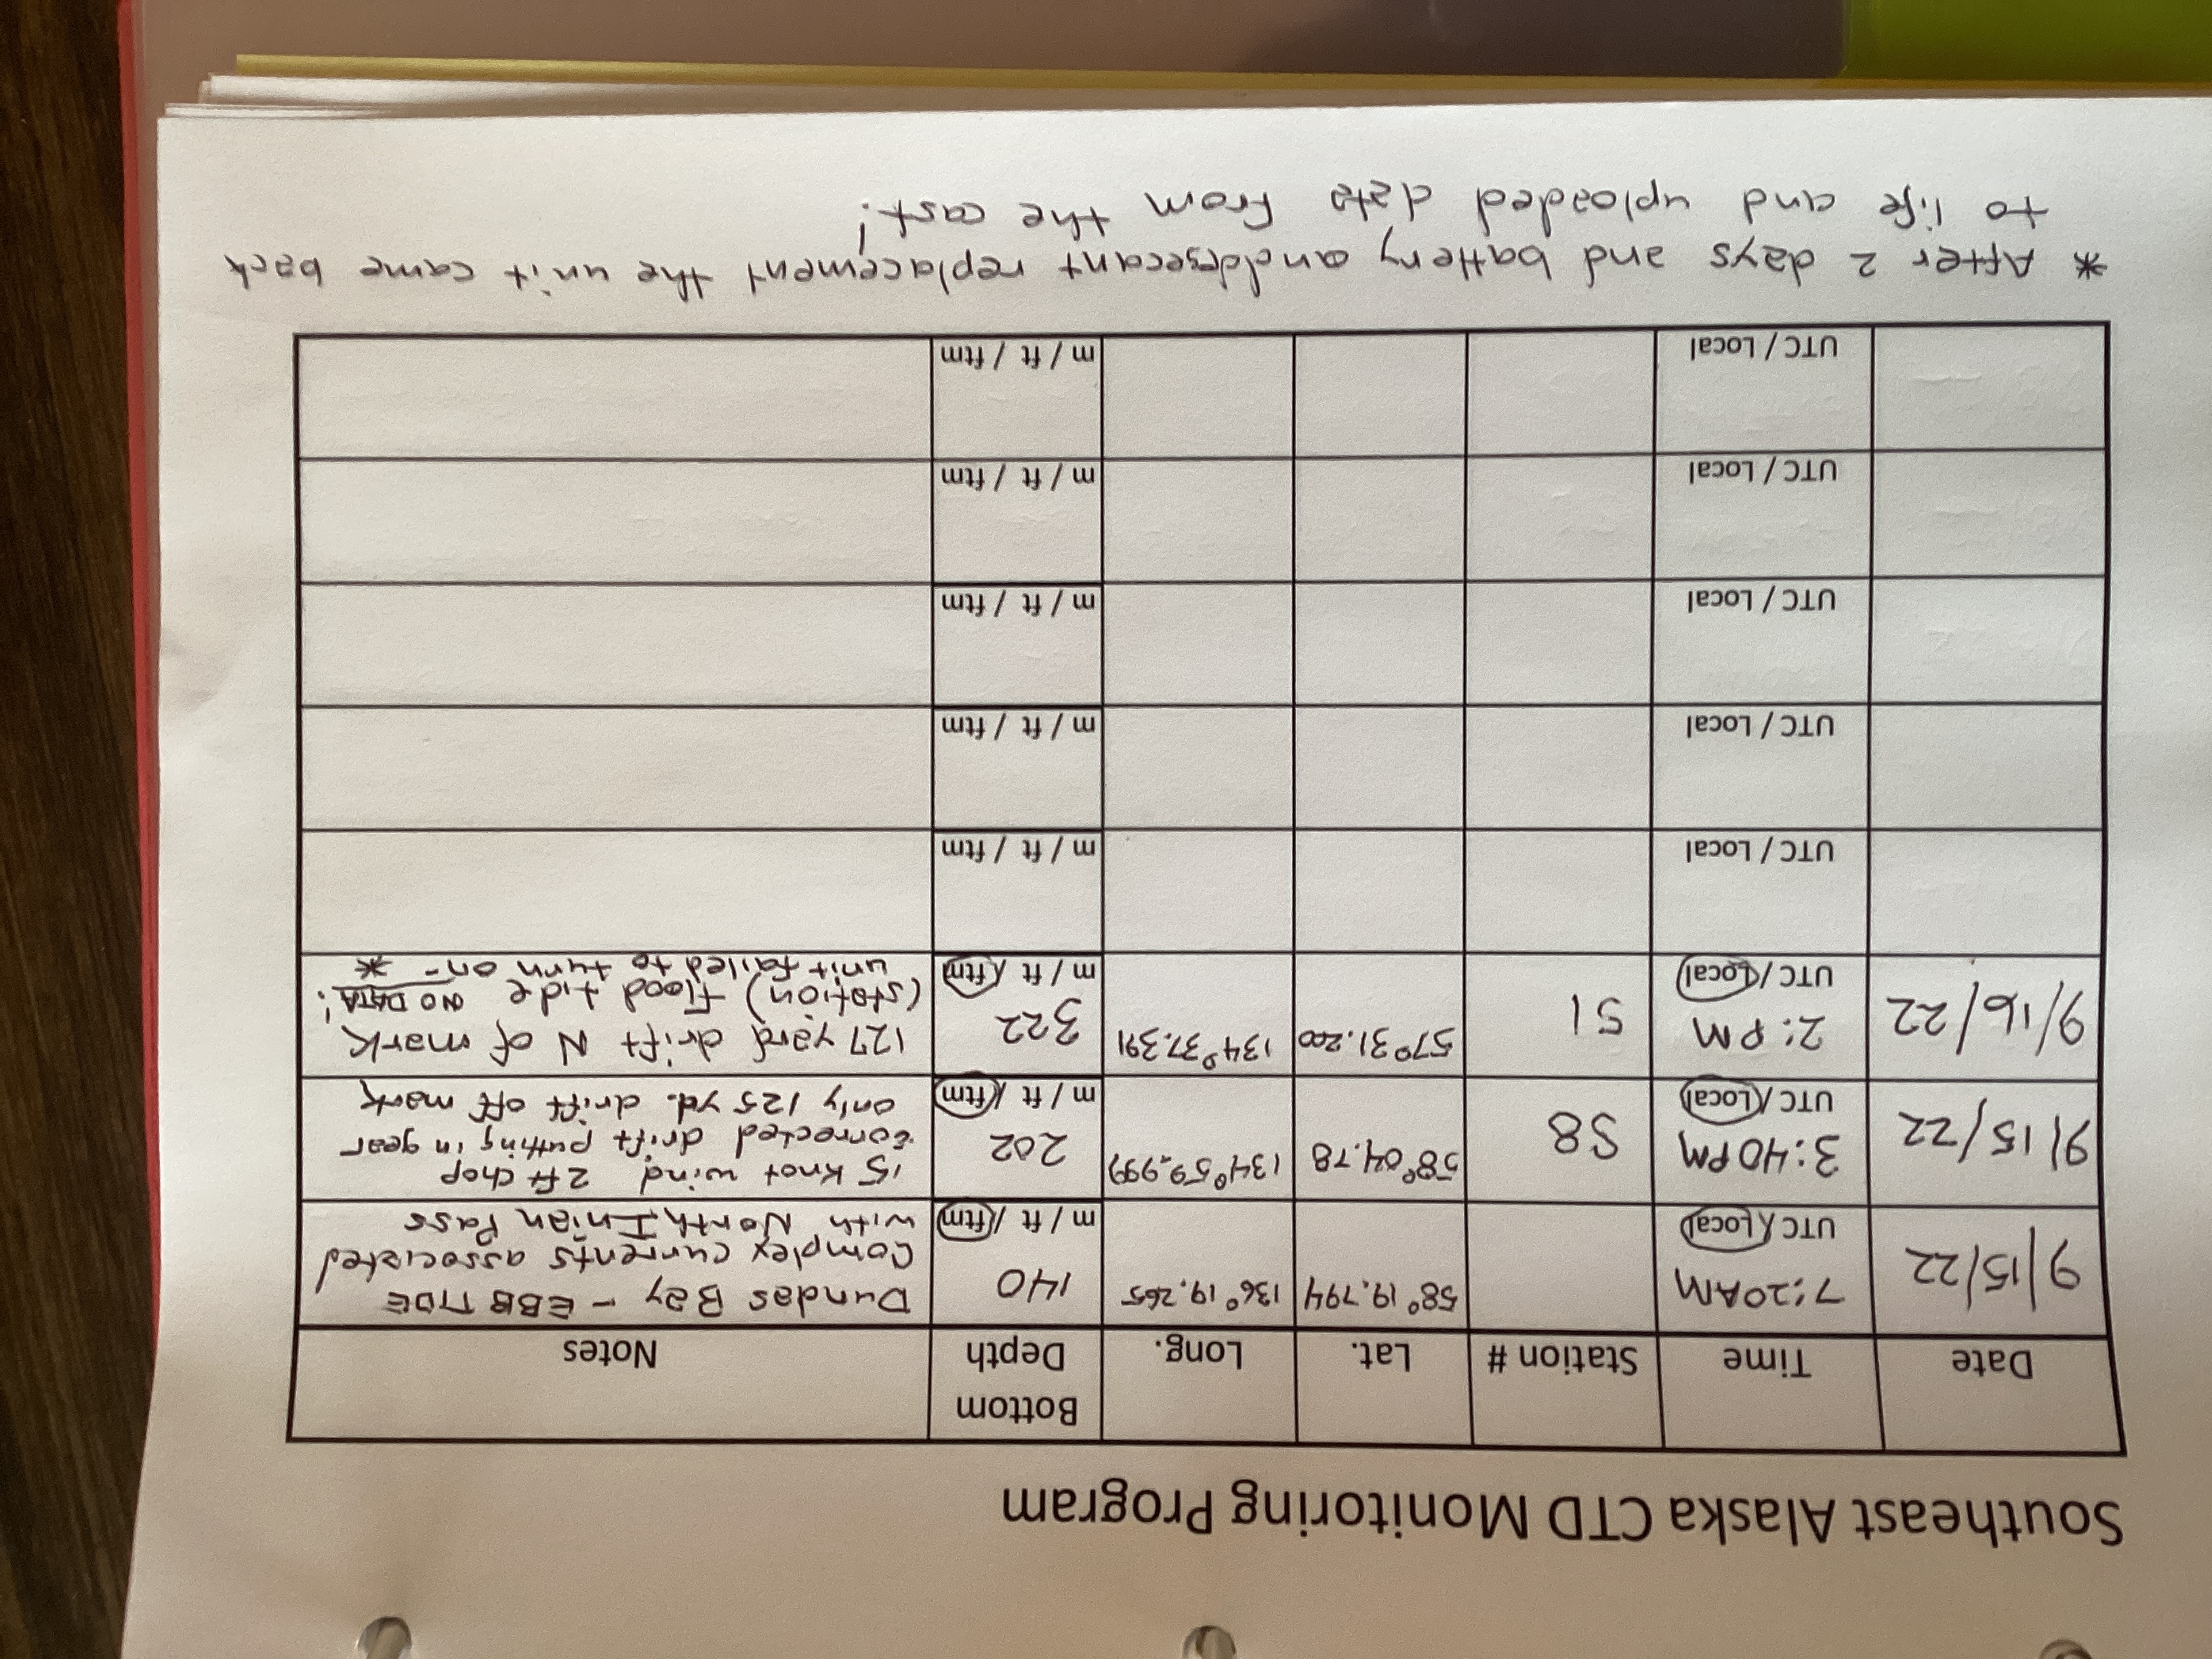 Southeast Alaska CTD Monitoring Program
Date Time Station # Lat. Long. Bottom Depth Notes
9/15/22 7:20AM 58° 19.794 136° 19.265 140 Dundas Bay - EBB TIDE
Complex currents associated
UTC / Local m / ft / ftm with North Inian Pass
9/15/22 3:40PM S8 58° 04.78 134° 59.999 202 15 Knot wind 2ft chop
corrected drift putting in gear
UTC / Local m / ft / ftm only 125 yd. drift off mark
9/16/22 2: PM S1 57° 31.200 134° 37.391 322 127 yard drift N of mark
(station) flood tide NO DATA!
UTC / Local m / ft / ftm unit failed to turn on- *
UTC / Local m / ft / ftm
UTC / Local m / ft / ftm
UTC / Local m / ft / ftm
UTC / Local m / ft / ftm
UTC / Local m / ft / ftm
* After 2 days and battery and desecant replacement the unit came back
to life and uploaded data from the cast!